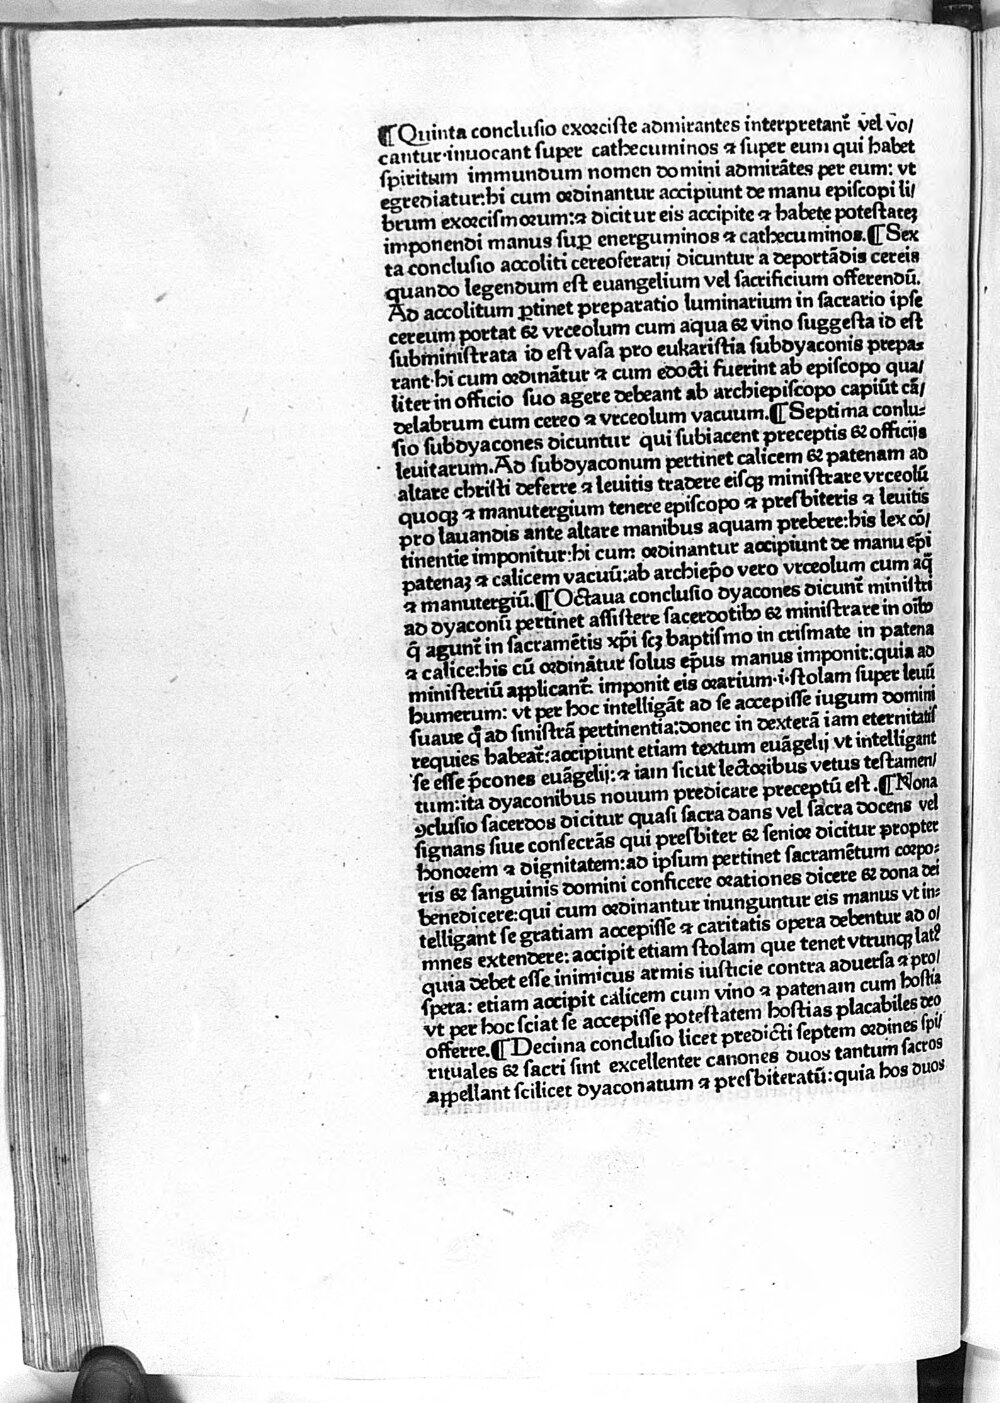 ¶Quinta conclusio exorciste admirantes interpretant̃ vel vo/
cantur·inuocant super cathecuminos ⁊ super eum qui habet
spiritum immundum nomen domini admirãtes per eum: vt
egrediatur:hi cum ordinantur accipiunt de manu episcopi li/
brum exorcismorum:⁊ dicitur eis accipite ⁊ habete potestateʒ
imponendi manus suꝑ energuminos ⁊ cathecuminos.¶Sex
ta conclusio accoliti cereoferarij dicuntur a deportãdis cereis
quando legendum est euangelium vel sacrificium offerendũ.
Ad accolitum ꝑtinet preparatio luminarium in sacrario ipse
cereum portat & vrceolum cum aqua & vino suggesta id est
subministrata id est vasa pro eukaristia subdyaconis prepa-
rant·hi cum ordinãtur ⁊ cum edocti fuerint ab episcopo qua/
liter in officio suo agere debeant ab archiepiscopo capiũt cã/
delabrum cum cereo ⁊ vrceolum vacuum.¶Septima conlu-
sio subdyacones dicuntur qui subiacent preceptis & officijs
leuitarum.Ad subdyaconum pertinet calicem & patenam ad
altare christi deferre ⁊ leuitis tradere eisqʒ ministrare vrceolũ
quoqʒ ⁊ manutergium tenere episcopo ⁊ presbiteris ⁊ leuitis
pro lauandis ante altare manibus aquam prebere:his lex cõ/
tinentie imponitur:hi cum ordinantur accipiunt de manu ep̃i
patenaʒ ⁊ calicem vacuũ:ab archiep̃o vero vrceolum cum aq̃
⁊ manutergiũ.¶Octaua conclusio dyacones dicunt̃ ministri
ad dyaconũ pertinet assistere sacerdotibꝰ & ministrare in oĩbꝰ
q̃ agunt̃ in sacramẽtis xp̃i scʒ baptismo in crismate in patena
⁊ calice:his cũ ordinãtur solus ep̃us manus imponit:quia ad
ministeriũ applicant̃. imponit eis orarium·i·stolam super leuũ
humerum: vt per hoc intelligãt ad se accepisse iugum domini
suaue q̃ ad sinistrã pertinentia:donec in dexterã iam eternitatis
requies habeat̃:accipiunt etiam textum euãgelij vt intelligant
se esse p̃cones euãgelij:⁊ iam sicut lectoribus vetus testamen/
tum:ita dyaconibus nouum predicare preceptũ est.¶Nona
ꝯclusio sacerdos dicitur quasi sacra dans vel sacra docens vel
signans siue consecrãs qui presbiter & senior dicitur propter
honorem ⁊ dignitatem:ad ipsum pertinet sacramẽtum corpo-
ris & sanguinis domini conficere orationes dicere & dona dei
benedicere:qui cum ordinantur inunguntur eis manus vt in-
telligant se gratiam accepisse ⁊ caritatis opera debentur ad o/
mnes extendere: accipit etiam stolam que tenet vtrunqʒ latꝰ
quia debet esse inimicus armis iusticie contra aduersa ⁊ pro/
spera: etiam accipit calicem cum vino ⁊ patenam cum hostia
vt per hoc sciat se accepisse potestatem hostias placabiles deo
offerre.¶Decima conclusio licet predicti septem ordines spi/
rituales & sacri sint excellenter canones duos tantum sacros
appellant scilicet dyaconatum ⁊ presbiteratũ:quia hos duos